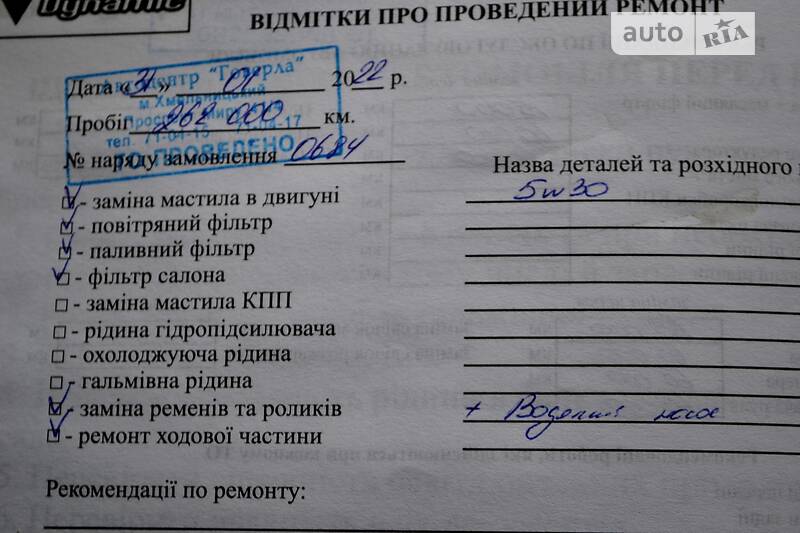 Dynamic
ВІДМІТКИ ПРО ПРОВЕДЕНИЙ РЕМОНТ
auto RIA
Автоцентр "Говерла"
м.Хмельницький
тел. 71-04-15 71-04-17
ТО ПРОВЕДЕНО
Дата «31» 01 2022 р.
Пробіг 262 000 км.
№ наряду замовлення 0684
Назва деталей та розхідного
- заміна мастила в двигуні
5w30
- повітряний фільтр
- паливний фільтр
- фільтр салона
- заміна мастила КПП
- рідина гідропідсилювача
- охолоджуюча рідина
- гальмівна рідина
- заміна ременів та роликів
+ Водяний насос
- ремонт ходової частини
Рекомендації по ремонту: